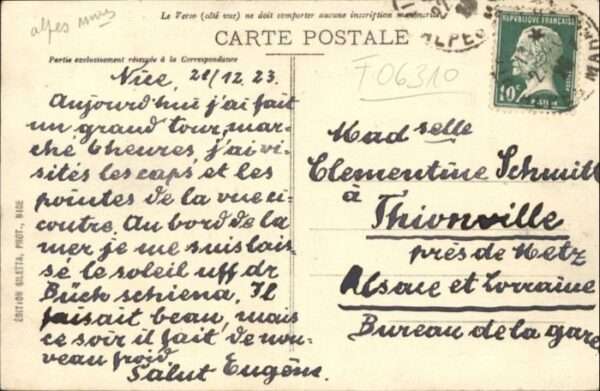 alpes mmes
Le Verso (côté vue) ne doit comporter aucune inscription manuscrite
CARTE POSTALE
Partie exclusivement réservée à la Correspondance
F06310
ALPES
RÉPUBLIQUE FRANÇAISE
10c
POSTES
Nice, 28/12.23.
Aujourd'hui j'ai fait
un grand tour, mar-
ché 6 heures, j'ai vi-
sités les caps, et les
pointes de la vue ci-
contre. Au bord de la
mer je me suis lais-
sé le soleil uff dr
Bück schiena. Il
faisait beau, mais
ce soir il fait de nou-
veau froid.
Salut Eugène.
Mad selle
Clementine Schmitt
à
Thionville
près de Metz
Alsace et Lorraine
Bureau de la gare
ÉDITION GILETTA, PHOT., NICE